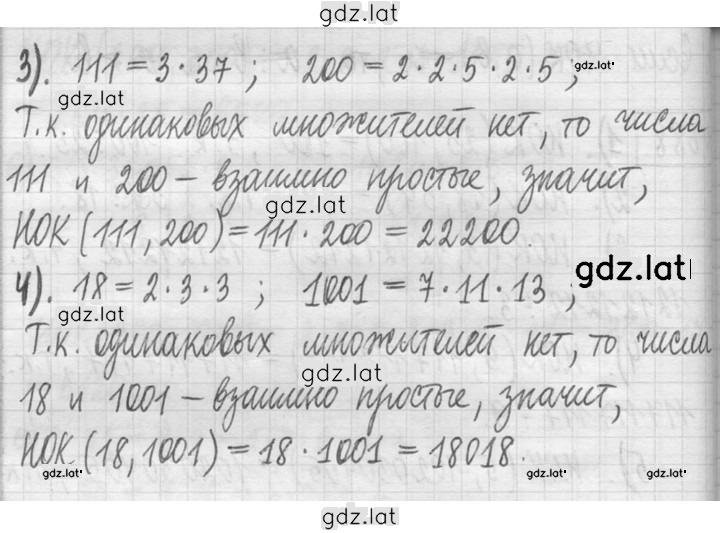 gdz.lat
3). 111 = 3 · 37 ; 200 = 2 · 2 · 5 · 2 · 5 ;
gdz.lat
gdz.lat
Т.к. одинаковых множителей нет, то числа
111 и 200 – взаимно простые, значит,
gdz.lat
НОК (111, 200) = 111 · 200 = 22200.
gdz.lat
4). 18 = 2 · 3 · 3 ; 1001 = 7 · 11 · 13 ;
gdz.lat
Т.к. одинаковых множителей нет, то числа
gdz.lat
18 и 1001 – взаимно простые, значит,
НОК (18, 1001) = 18 · 1001 = 18018.
gdz.lat gdz.lat gdz.lat
gdz.lat